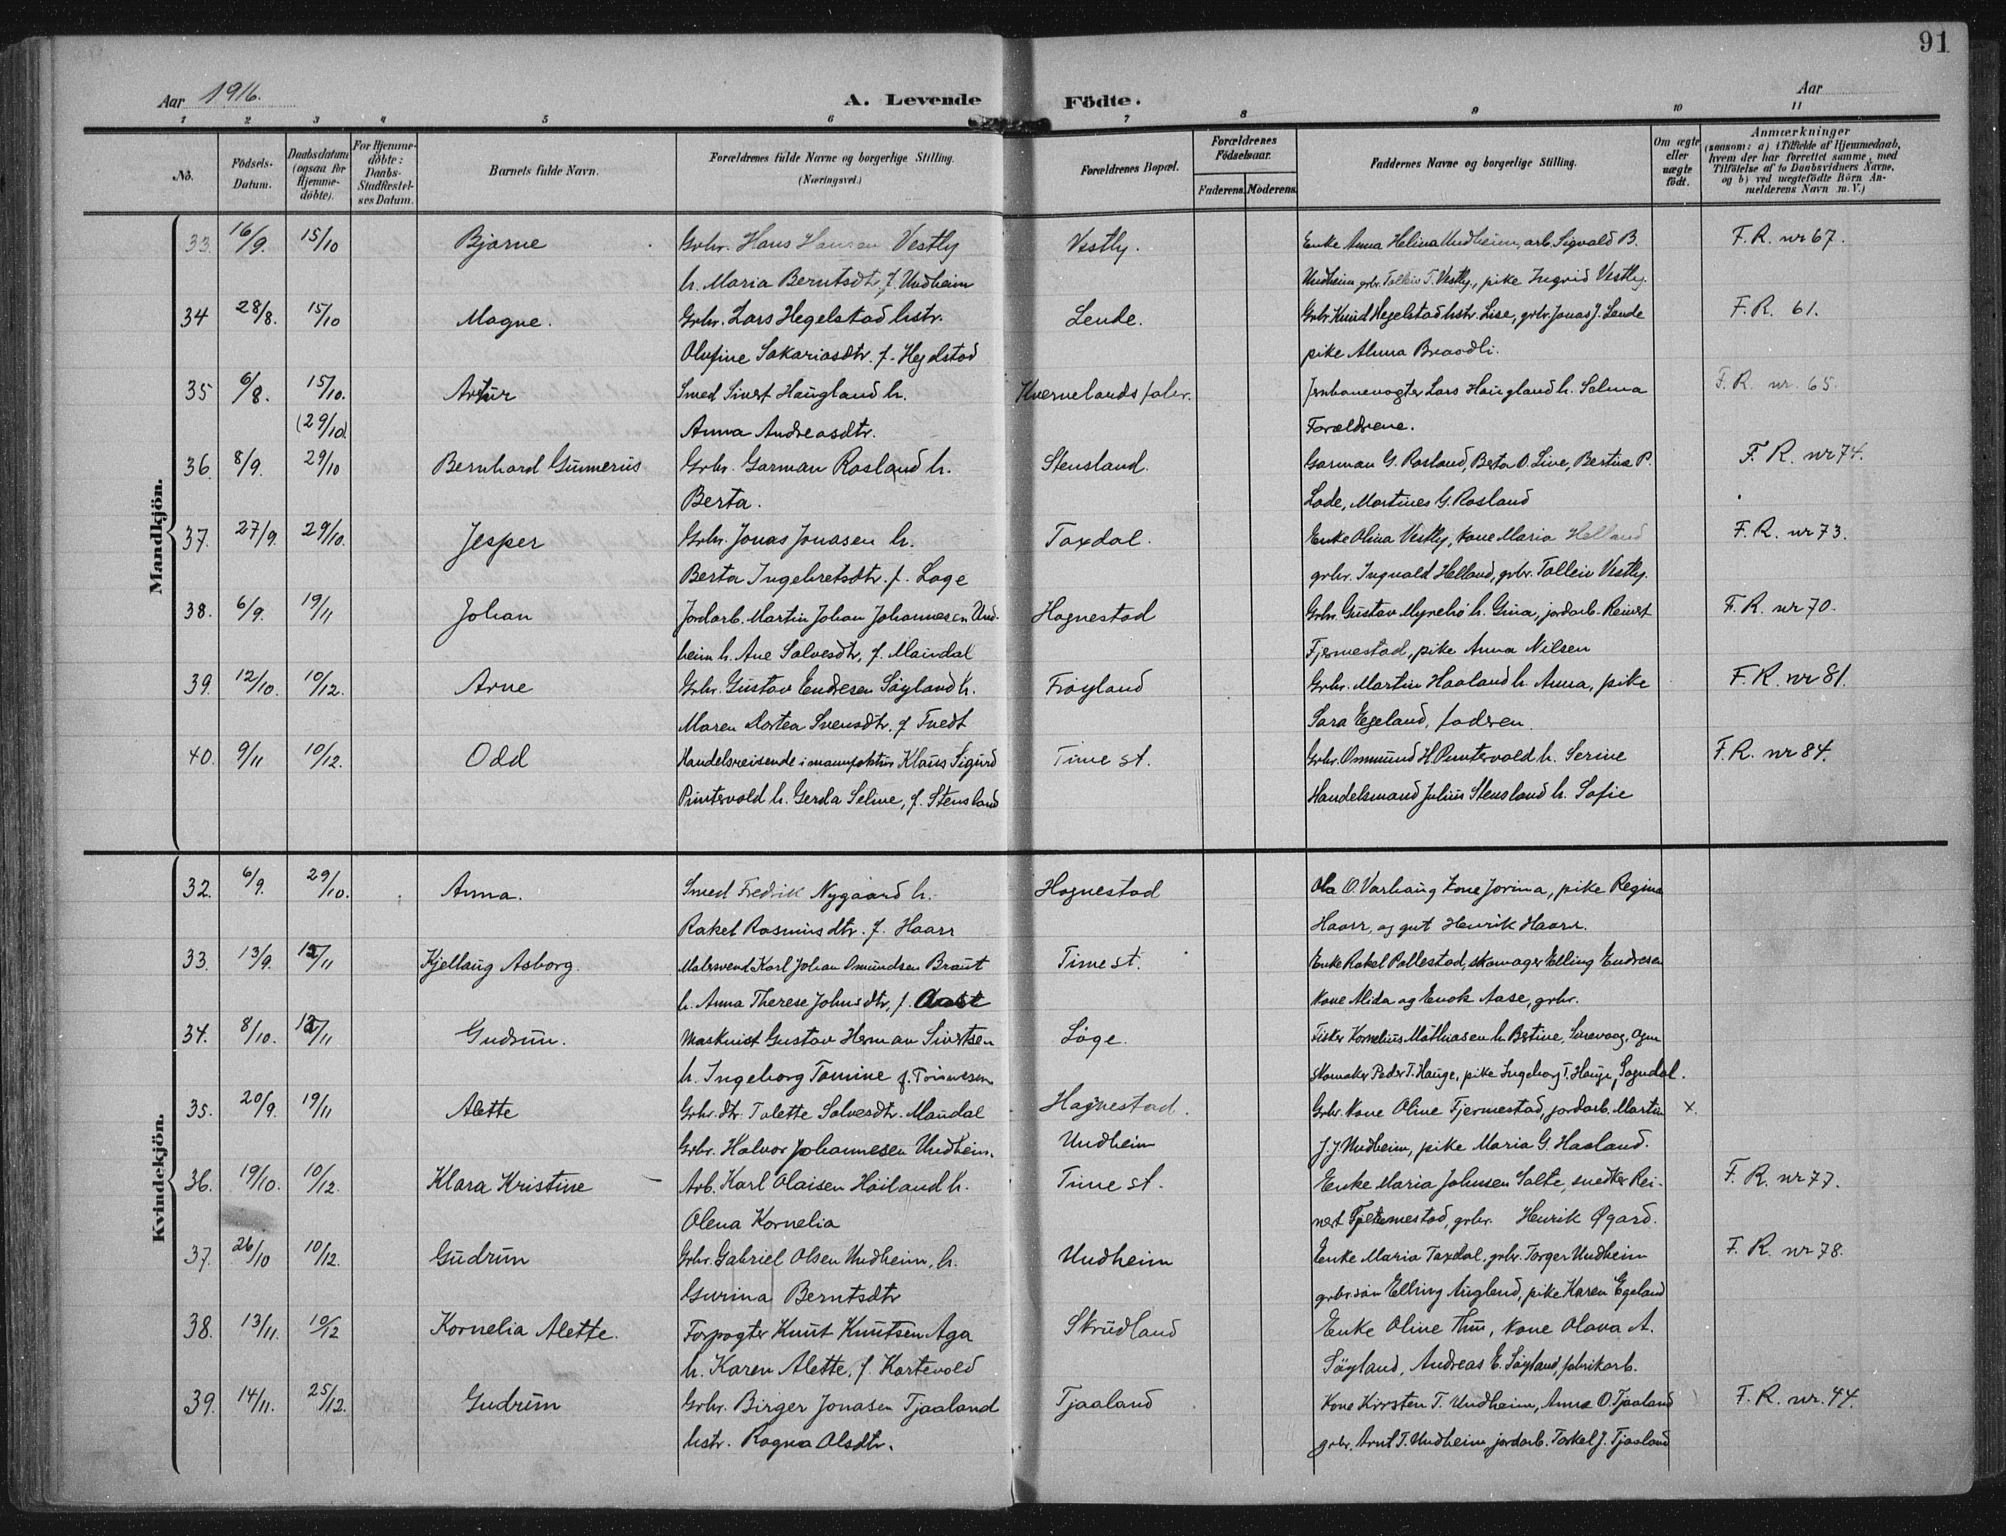 91
Aar 1916. A. Levende Födte. Aar
1 2 3 4 5 6 7 8 9 10 11
No. Födsels-Datum. Daabsdatum (ogsaa for Hjemme-döbte). For Hjemme-döbte: Daabs-Stadfæstel-ses Datum. Barnets fulde Navn. Forældrenes fulde Navne og borgerlige Stilling. (Næringsvei.) Forældrenes Bopæl. Forældrenes Födselsaar. Faderens. Moderens. Faddernes Navne og borgerlige Stilling. Om ægte eller uægte födt. Anmærkninger (saasom: a) i Tilfælde af Hjemmedaab, hvem der har forrettet samme, med Tilföielse af to Daabsvidners Navne, og b) ved uægtefödte Börn An-melderens Navn m. V.)
Mandkjön.
33. 16/9. 15/10 Bjarne Grbr. Hans Hansen Vestly Vestly. Enke Anna Helina Undheim, arb. Sigvald B. F. R. nr 67.
h. Maria Berntsdtr. f. Undheim Undheim grbr. Tolleiv T. Vestly, pike Ingrid Vestly.
34 28/8. 15/10 Magne. Grbr. Lars Hegelstad hstr. Lende. Grbr. Knud Hegelstad hstr. Lise, grbr. Jonas J. Lende F. R. 61.
Olufine Sakariasdtr. f. Hegelstad pike Alma Braadli.
35 6/8. 15/10. Artur Smed Sivert Haugland h. Kvernelands fabr. Jernbanevogter Lars Haugland h. Selma F. R. nr. 65.
(29/10) Anna Andreasdtr. Forældrene.
36. 8/9. 29/10 Bernhard Gunnerius Grbr. Garman Rosland h. Stensland. Garman G. Rosland, Berta O. Live, Bertine P. F. R. nr 74.
Berta. Lode, Martines G. Rosland
37. 27/9. 29/10. Jesper Grbr. Jonas Jonasen h. Taxdal. Enke Olina Vestly, kone Maria Helland F. R. nr 73.
Berta Ingebretsdtr. f. Loge grbr. Ingvald Helland, grbr. Tolleiv Vestly.
38. 6/9. 19/11 Johan Jordarb. Martin Johan Johannesen Und- Hognestad Grbr. Gustav Myrebø h. Gina, jordarb. Reinert F. R. nr 70.
heim h. Ane Salvesdtr, f. Mandal Fjermestad, pike Anna Nilsen
39. 12/10. 10/12. Arne Grbr. Gustav Endresen Søyland h. Frøyland Grbr. Martin Haaland h. Anna, pike F. R. nr 81.
Maren Dortea Svensdtr. f Tvedt Sara Egeland, faderen
40. 9/11 10/12. Odd Handelsreisende i manufaktur Klaus Sigurd Time st. Grbr. Ommund H. Puntervold h. Serine F. R. nr 84.
Puntervold h. Gerda Seline, f. Stensland Handelsmand Julius Stensland h. Sofie
Kvindekjön.
32. 6/9. 29/10. Anna. Smed Fredrik Nygaard h. Hognestad Ola O. Varhaug kone Jorina, pike Regina
Rakel Rasmusdtr. f. Haarr Haarr, og gut Henrik Haarr.
33. 13/9. 12/11 Kjellaug Asborg. Malersvend Karl Johan Osmundsen Braut Time st. Enke Rakel Pollestad, skomager Elling Endresen
h. Anna Therese Johnsdtr, f. Aase Kone Alida og Enok Aase, grbr.
34. 8/10. 12/11 Gudrun. Maskinist Gustav Herman Sivertsen Løge. Fisker Kornelius Mathiasen h. Bertine, Sirevaag, Ogn
h. Ingeborg Tomine f. Tønnesen skomaker Peder T. Hauge, pike Ingeborg T. Hauge, Sogndal.
35. 20/9. 19/11 Alette Grbr. dtr. Talette Salvesdtr. Mandal Hognestad. Grbr. Kone Oline Fjermestad, jordarb. Martin x.
Grbr. Halvor Johannesen Undheim. Undheim J. J. Undheim, pike Maria G. Haaland.
36. 19/10. 10/12. Klara Kristine Arb. Karl Olaisen Høiland h. Time st. Enke Maria Johnsen Salte, snedker Rei- F. R. nr 77.
Olena Kornelia nert Fjermestad, grbr. Henrik Øgard.
37. 26/10 10/12. Gudrun Grbr. Gabriel Olsen Undheim, h. Undheim Enke Maria Taxdal, grbr. Torger Undheim F. R. nr 78.
Gurina Berntsdtr grbr. søn Elling Augland, pike Karen Egeland
38. 13/11. 10/12 Kornelia Alette. Forpagter Knut Knutsen Aga Skrudland Enke Oline Thu, Kone Olava A.
h. Karen Alette, f. Kartevold Søyland, Andreas E. Søyland, fabrikarb.
39. 14/11. 25/12. Gudrun Grbr. Birger Jonasen Tjaaland Tjaaland Kone Kirsten T. Undheim, Anna O. Tjaaland F. R. nr. 94.
hstr. Ragna Olsdtr. grbr. Arnt T. Undheim jordarb. Torkel J. Tjaaland